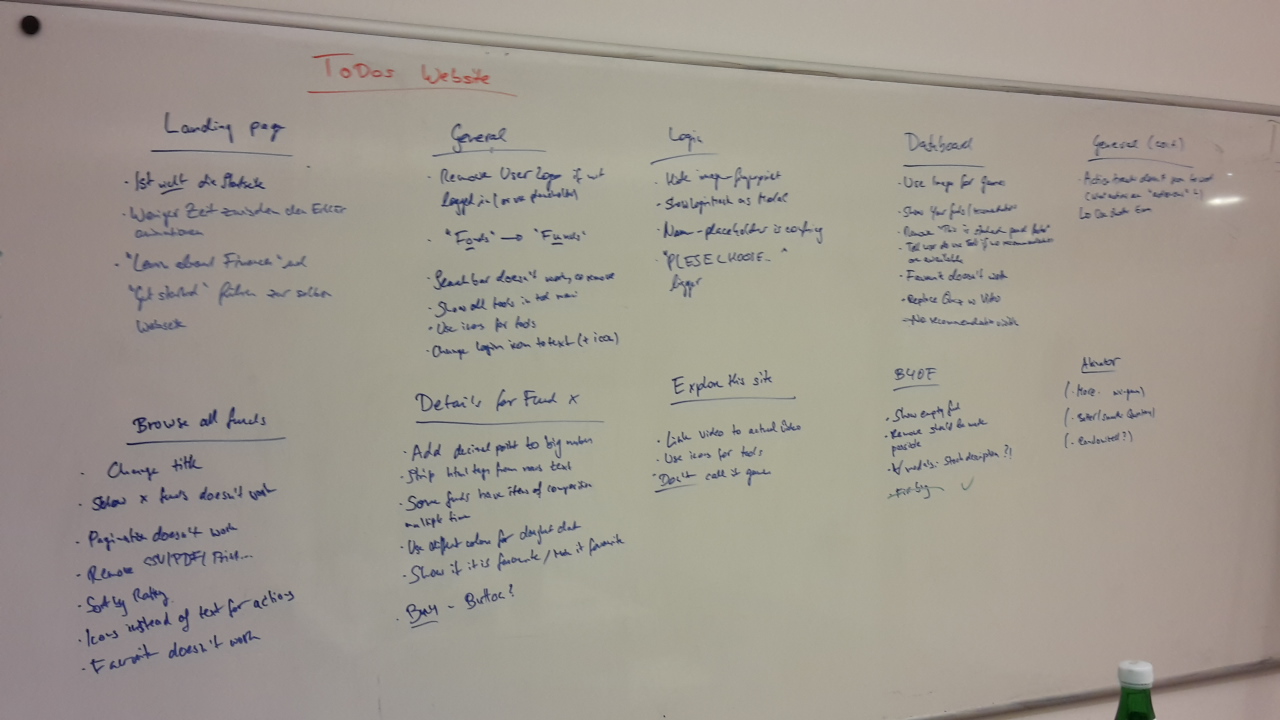 ToDos Website
Landing page
· Ist die Startseite
· Weniger Zeit zwischen den
animationen
· "Learn about Finance" und
"Get started" führen zur selben
Webseite
General
· Remove User Logo if not
logged in (or use placeholder)
· "Fonds" → "Funds"
· Search bar doesn't work, or remove
· Show all tools in tool menu
· Use icons for tools
· Change Login icon to text (+ icon)
Login
· Make image fingerprint
· Show login mask as Modal
· Name-placeholder is confusing
· "PLESE CHOOSE..."
bigger
Dashboard
· Use image for game
· Show Your funds/
· Remove "This is
· Tell user to use tool if no recommendation
are available
· Favourite doesn't work
· Replace Quiz w Video
No recommendation
General (cont)
Browse all funds
· Change title
· Show x funds doesn't work
· Pagination doesn't work
· Remove CSV/PDF/Print...
· Sort by Rating
· Icons instead of text for actions
· Favorite doesn't work
Details for Fund x
· Add decimal point to big numbers
· Strip html tags from news text
· Some funds have items of composition
multiple time
· Use different colors for doughnut chart
· Show if it is favourite / Make it favourite
· Buy - Button?
Explore this site
· Link video to actual video
· Use icons for tools
· Don't call it game
BYOF
· Show empty fund
· Remove should be made
possible
description?!
✓
(· More
(· Randomized?)